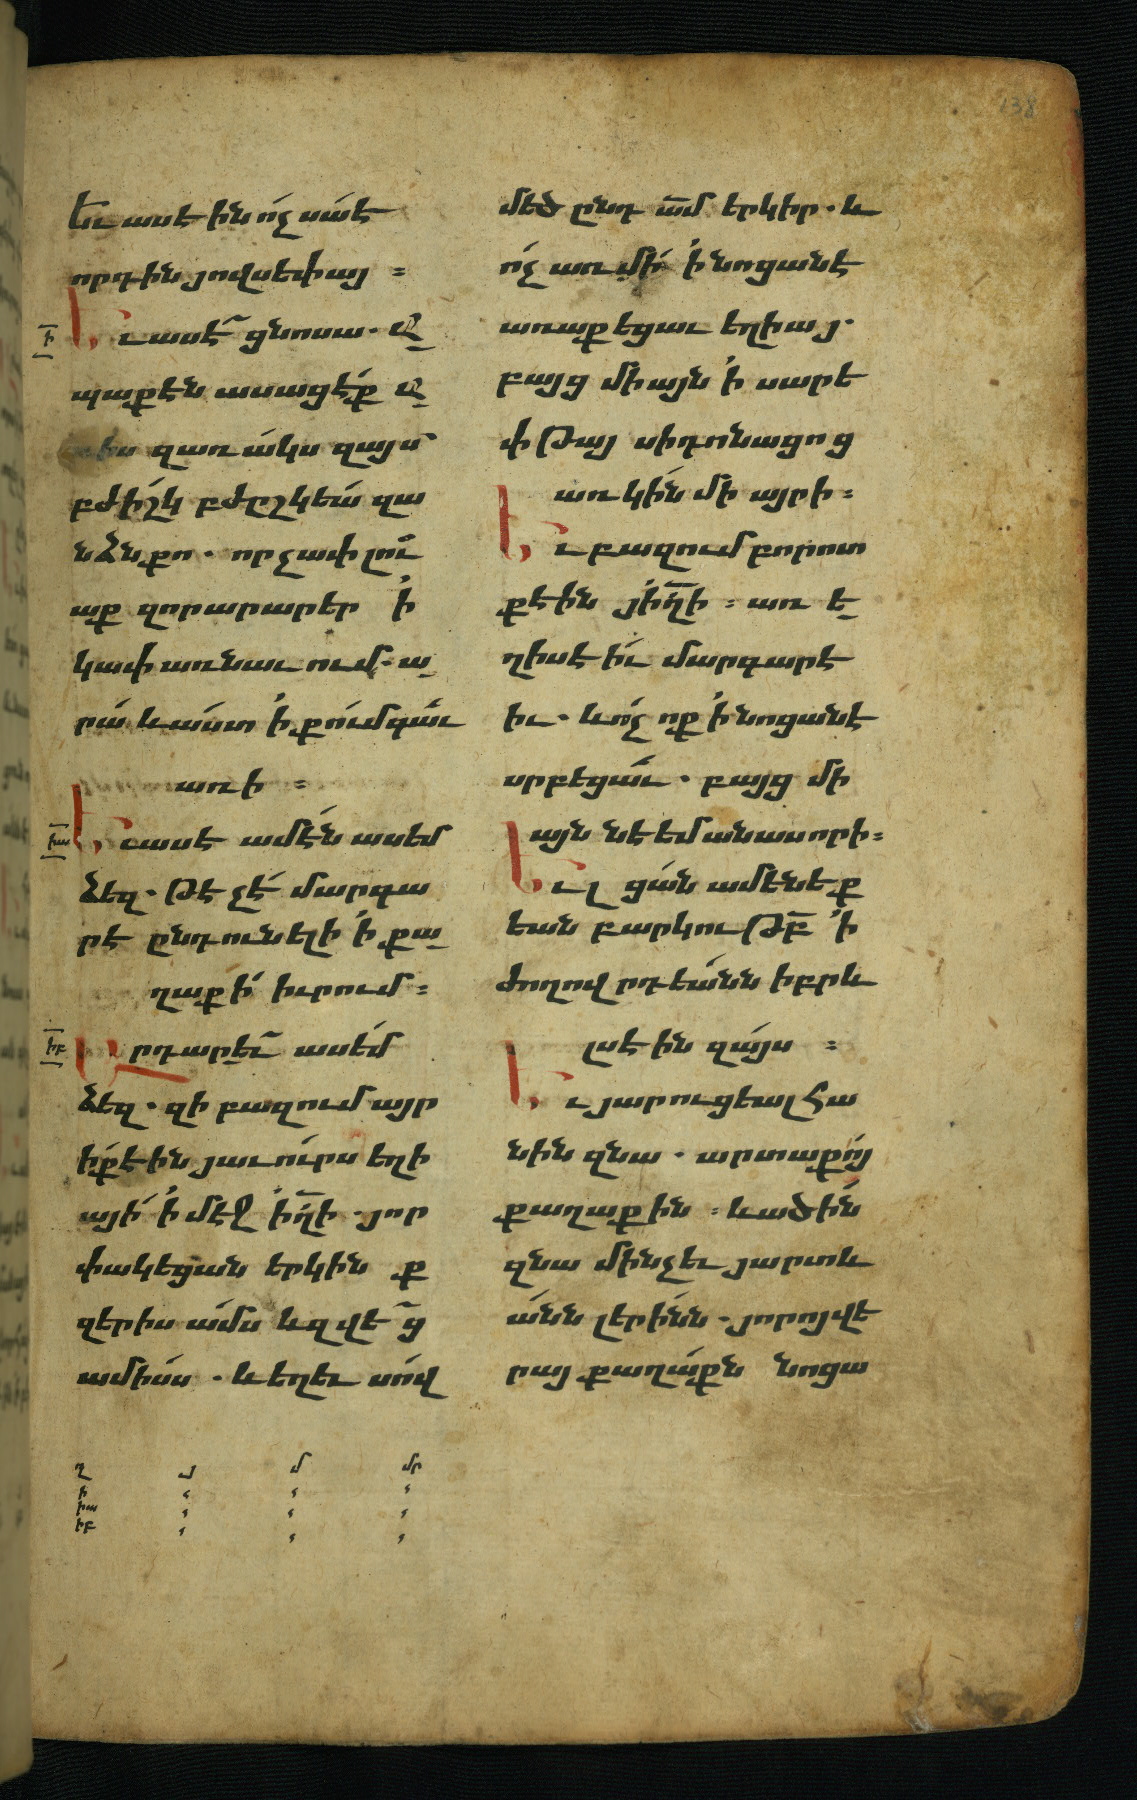 138
Եւ ասէին ո՛չ սա՛ է
որդին յովսեփայ ։
ի
Եւ ասէ՜ ցնոսա. Ա
պաքէն ասացէ՛ք ա
զառակս զայս՝
բժի՛շկ բժշկեա՛ զա
նձն քո. որչափ լու՜
աք զոր արարեր ՛ի
կափառնաւում. ա
րա՛ և աստ ՛ի քո՛ւմ գաւ՜
առի ։
իա
Եւ ասէ ամէ՛ն ասեմ
ձեզ. թէ չէ՛ մարգա
րէ ընդունելի ՛ի քա
ղաքի՛ իւրում ։
իբ
Արդարե՜ւ ասե՛մ
ձեզ. զի բազում այր
ի՛ք էին յաւո՛ւրս եղի
այի՛ ՛ի մէջ ՛ի՜ղի. յոր
փակեցան երկին ք
զերիս ա՛մս և զվե՜ց
ամի՛սս. և եղեւ սո՛վ
մեծ ընդ ա՜մ երկիր. և
ո՛չ առ մի՛ ՛ի նոցանէ
առաքեցաւ եղիայ.
բայց միայն ՛ի սարե
փթայ սիդոնացոց
առ կին մի այրի ։
Եւ բազում բորոտ
ք էին յի՜ղի ։ առ ե
ղիսէի՛ւ մարգարէ
իւ. և ո՛չ ոք ՛ի նոցանէ
սրբեցա՜ւ. բայց մի
այն նեեման ասորի ։
Եւ լցա՛ն ամենեք
եան բարկութ՜բ ՛ի
ժողովրդեա՛նն իբրև
լսէին զա՛յս ։
Եւ յարուցեալ հա
նին զնա. արտաքո՛յ
քաղաքին ։ և ածի՛ն
զնա մինչեւ յարտև
ա՛նն լերի՛նն. յորոյ վե
րայ քաղա՛քն նոցա
ղ յ մ մր
ի
իա
իբ